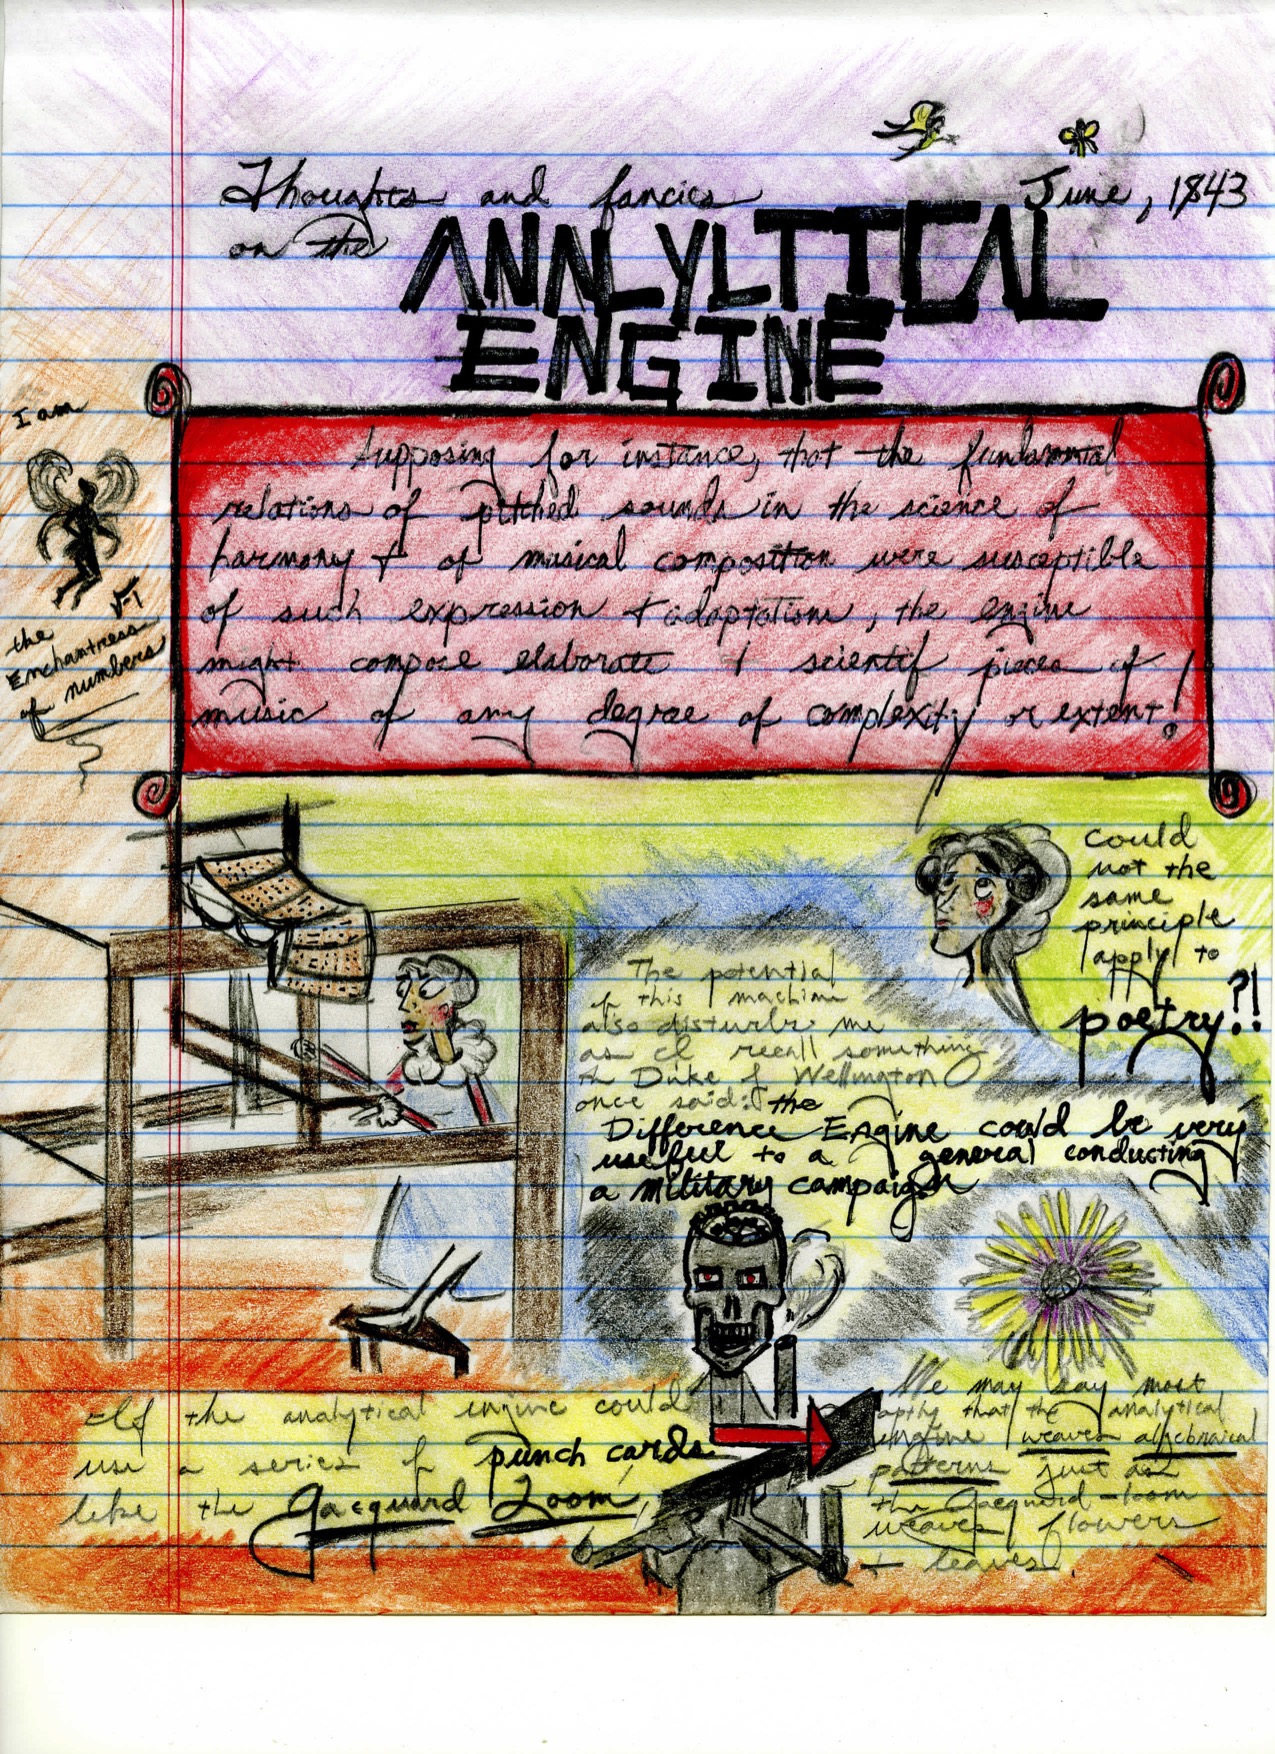 Thoughts and fancies
June, 1843
on the
ANNLYLTICAL
ENGINE
I am
√-1
the
Enchantress
of numbers
Supposing for instance, that the fundamntal
relations of pitched sounds in the science of
harmony + of musical composition were susceptible
of such expression + adaptations, the engine
might compose elaborate + scientif pieces of
music of any degree of complexity or extent!
Could
not the
same
principle
apply to
poetry?!
The potential
of this machine
also disturbs me
as I recall something
the Duke of Wellington
once said: the
Difference Engine could be very
useful to a general conducting
a military campaign
If the analytical engine could
use a series of punch cards
like the Jacquard Loom,
We may say most
aptly that the analytical
engine weaves algebraical
patterns just as
the Jacquard-loom
weaves flowers
+ leaves.